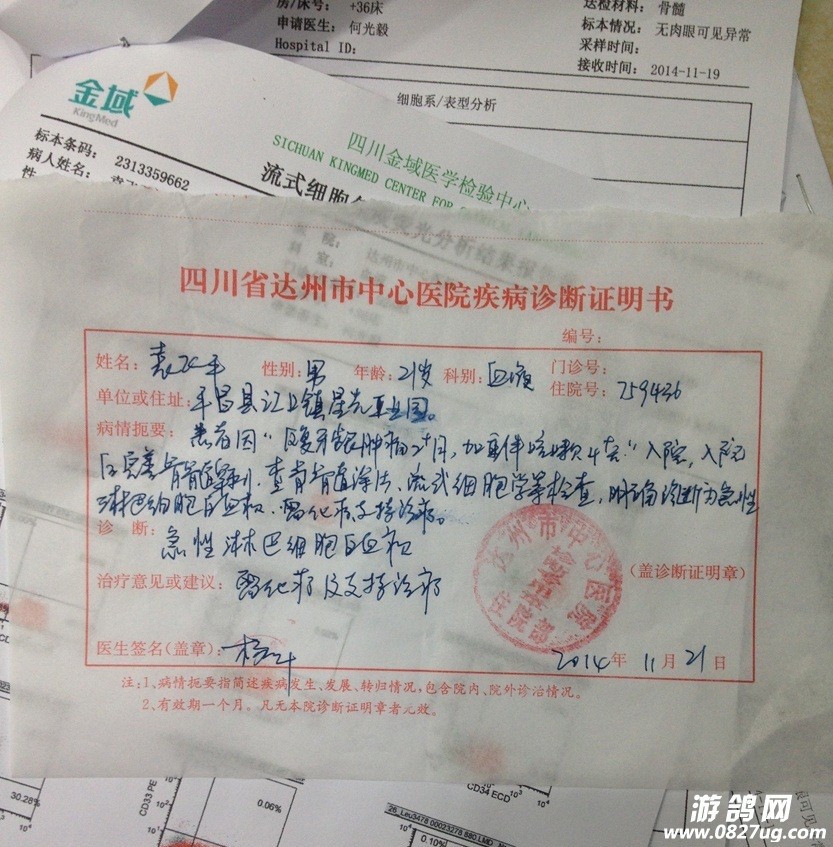 房/床号: +36床
申请医生: 何光毅
Hospital ID:
送检材料: 骨髓
标本情况: 无肉眼可见异常
采样时间:
接收时间: 2014-11-19
细胞系/表型分析
金域
KingMed
四川金域医学检验中心
SICHUAN KINGMED CENTER FOR
标本条码: 2313359662
病人姓名:
流式细胞
四川省达州市中心医院疾病诊断证明书
编号:
姓名: 性别: 男 年龄: 21岁 科别: 血液 门诊号:
住院号: 759436
单位或住址: 平昌县江口镇星光工业园。
病情扼要: 患者因“ 牙龈肿痛 月,加重伴咳嗽4天”入院,入院
后完善 骨髓 查骨髓涂片、流式细胞学等检查,明确诊断为急性
淋巴细胞白血病. 需化疗及支持治疗。
诊 断: 急性淋巴细胞白血病
(盖诊断证明章)
治疗意见或建议: 需化疗及支持治疗
达州市中心医院
住院部
医生签名(盖章):
2014年 11月 21日
注:1、病情扼要指简述疾病发生、发展、转归情况,包含院内、院外诊治情况。
2、有效期一个月。凡无本院诊断证明章者无效。
30.28%
CD33 PE
0.06%
CD34 ECD
0.10%
游鸽网
www.0827ug.com